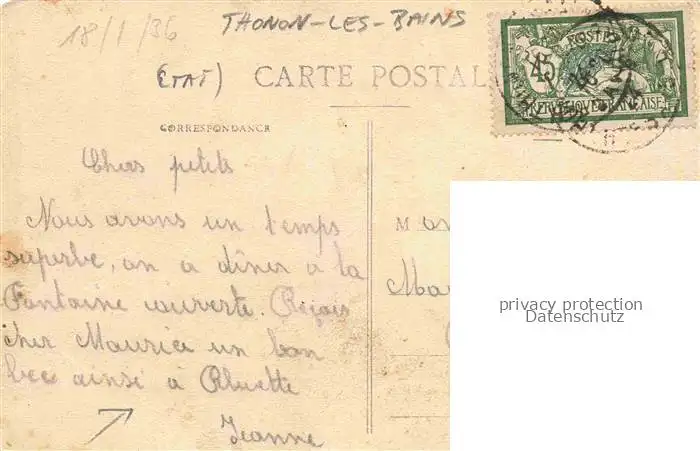 18/1/36
THONON-LES-BAINS
(ETAT)
CARTE POSTAL
POSTES
45
REPUBLIQUE FRANÇAISE
CORRESPONDANCE
Chers petits
Nous avons un temps
superbe, on a dîner à la
Fontaine couverte. Reçois
cher Maurice un bon
bec ainsi à
Jeanne
M
Ma
privacy protection
Datenschutz